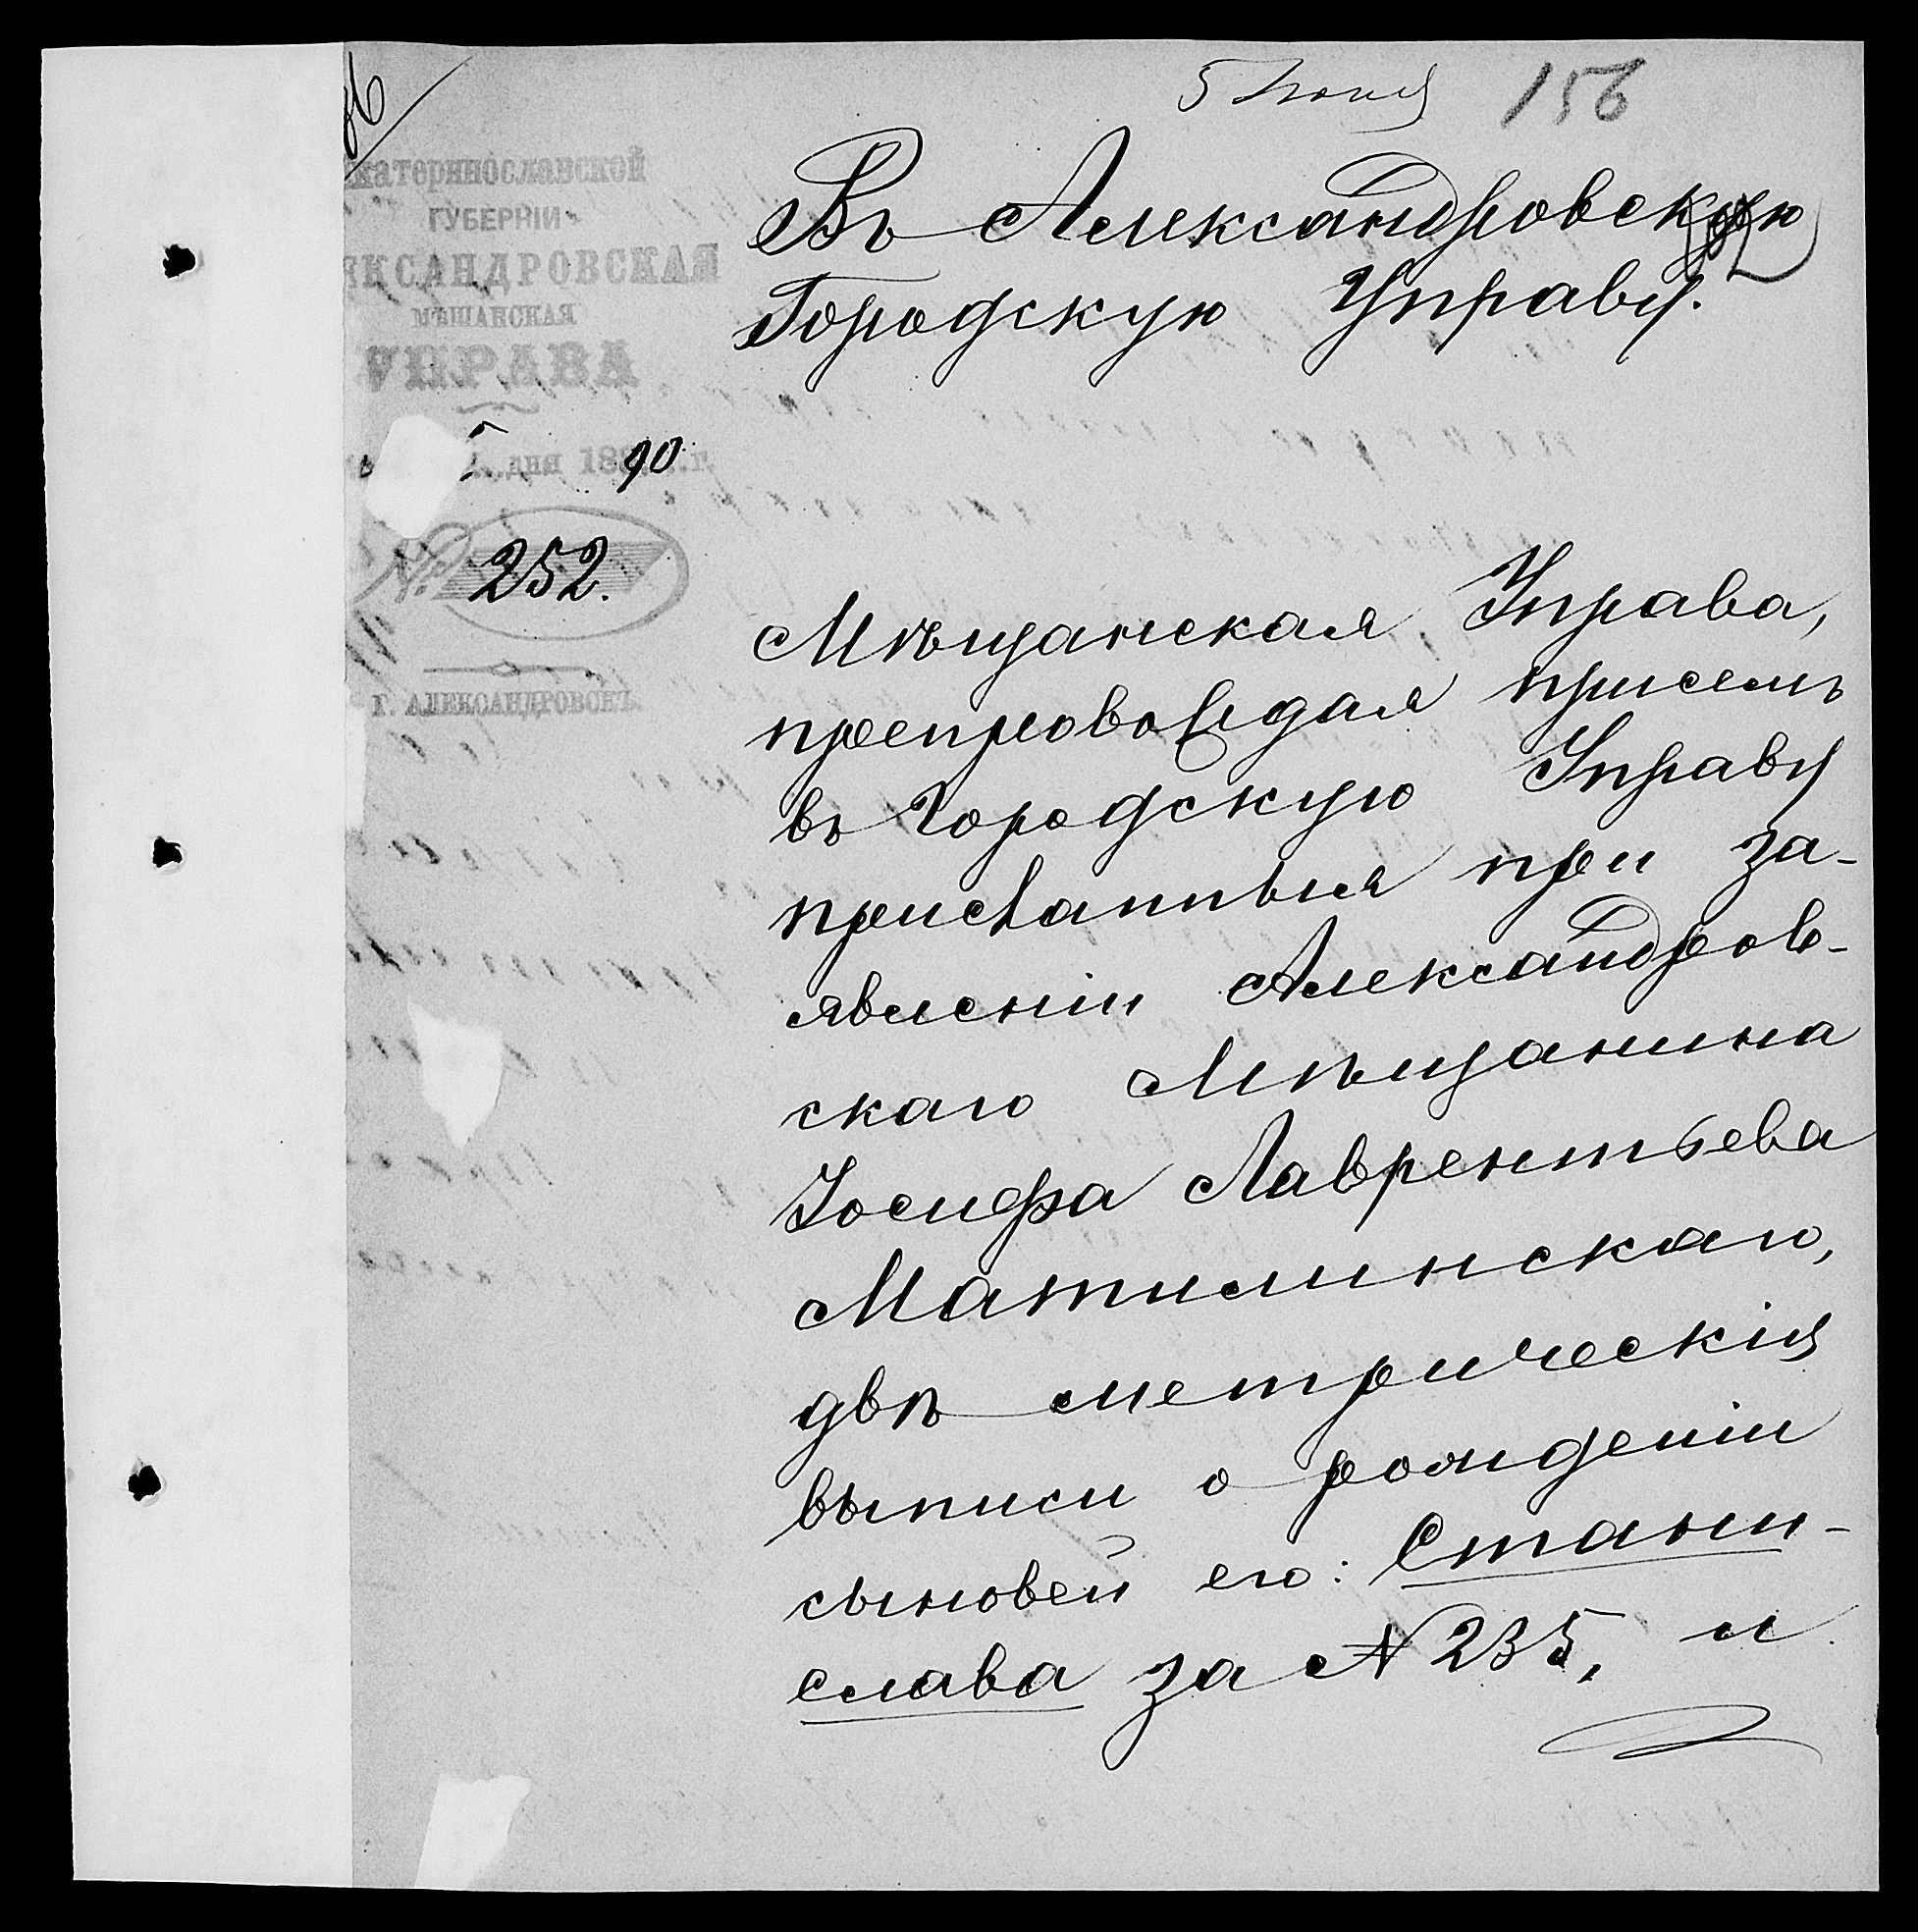 5 Июня 156
Въ Александровскую
Городскую Управу.
катеринославской
ГУБЕРНІИ
ЕКСАНДРОВСКАЯ
МѢЩАНСКАЯ
УПРАВА
дня 18 90 г.
№ 252.
Г. АЛЕКСАНДРОВСКЪ
Мѣщанская Управа,
препровождая присемъ
въ Городскую Управу
присланныя при за-
явленіи Александров-
скаго Мѣщанина
Іосифа Лаврентьева
Матилинскаго,
двѣ метрическія
выписи о рожденіи
сыновей его: Стани-
слава за № 235, и